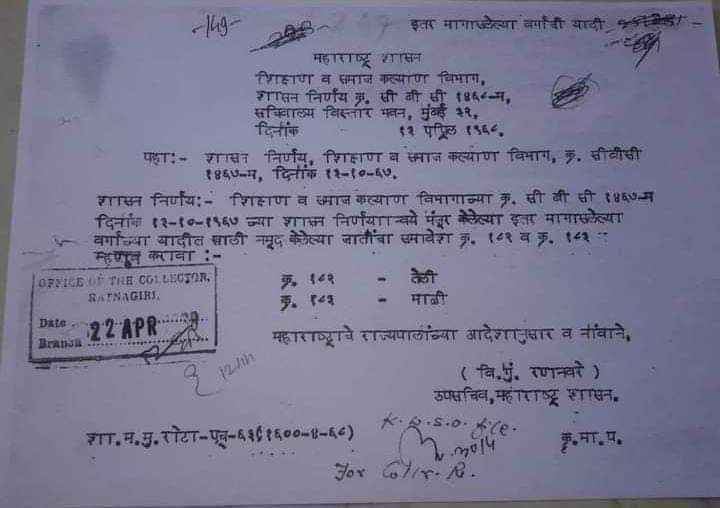 -149-
इतर मागासलेल्या वर्गाची यादी
महाराष्ट्र शासन
शिक्षण व समाज कल्याण विभाग,
शासन निर्णय क्र. सी बी सी १४६८-म,
सचिवालय विस्तार भवन, मुंबई ३२,
दिनांक - १२ एप्रिल १९६८.
पहा:- शासन निर्णय, शिक्षण व समाज कल्याण विभाग, क्र. सीबीसी
१४६७-म, दिनांक १२-१०-६७.
शासन निर्णय:- शिक्षण व समाज कल्याण विभागाच्या क्र. सी बी सी १४६७-म
दिनांक १२-१०-१९६७ च्या शासन निर्णयान्वये मंजूर केलेल्या इतर मागासलेल्या
वर्गाच्या यादीत खाली नमूद केलेल्या जातींचा समावेश क्र. १८२ व क्र. १८३
म्हणून करावा :-
OFFICE OF THE COLLECTOR,
RATNAGIRI.
Date
22 APR
Branch
क्र. १८२ - तेली
क्र. १८३ - माळी
महाराष्ट्राचे राज्यपालांच्या आदेशानुसार व नांवाने,
( वि.मुं. रणनवरे )
उपसचिव, महाराष्ट्र शासन.
शा.म.मु.रोटा-एच-६३९(१६००-४-६८)
कृ.मा.प.
For Collr. R.